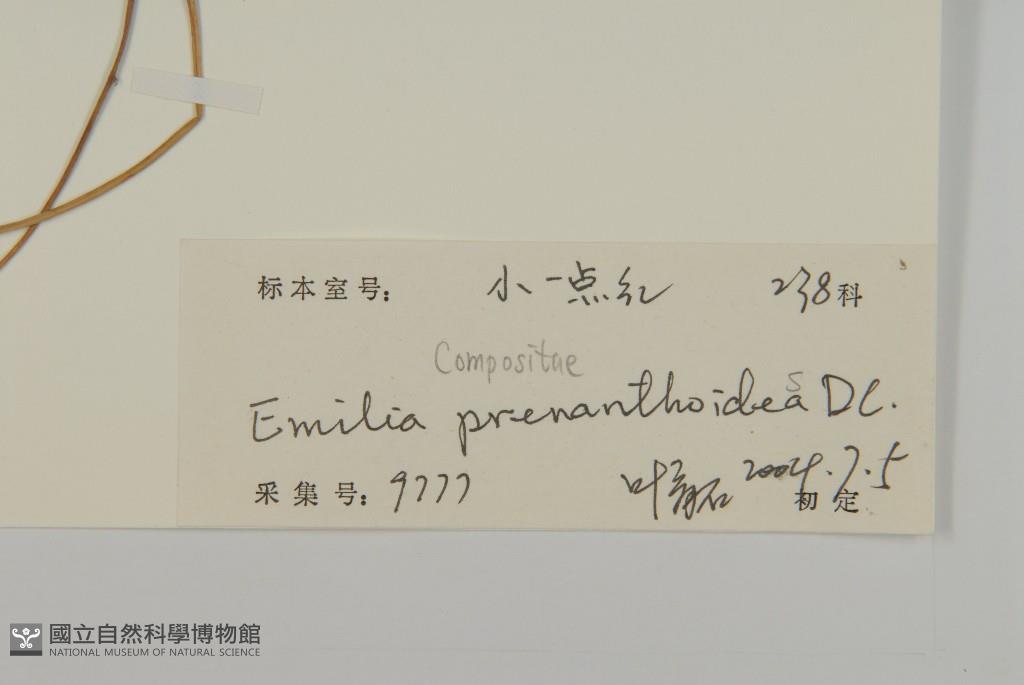 标本室号： 小一点红 238科
Compositae
Emilia prenanthoidea DC.
s
采集号： 9777 叶 2004.7.5
初定
國立自然科學博物館
NATIONAL MUSEUM OF NATURAL SCIENCE